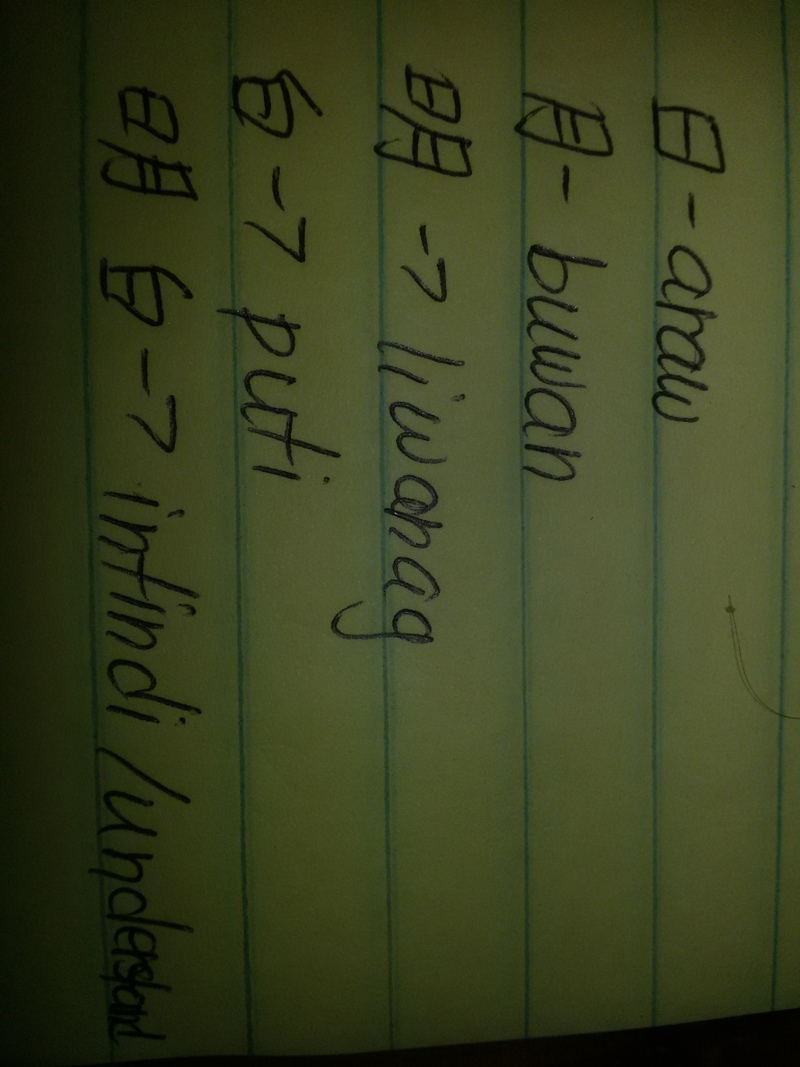 日-araw
月- buwan
明 -> liwanag
白 -> puti
明白 -> intindi/understand